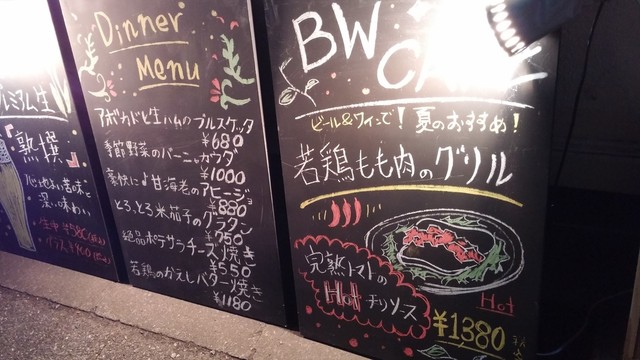 プレミアム生
『熟撰』
心地よい苦味と
深い味わい
Dinner
Menu
アボカドと生ハムのブルスケッタ
¥680
季節野菜のバーニャカウダ
¥1000
豪快に♪甘海老のアヒージョ
¥880
とろ、とろ米茄子のグラタン
¥750
絶品ポテサラチーズ焼き
¥550
若鶏のかえしバター焼き
¥1180
BW
CAFE
ビール&ワインで!夏のおすすめ!
若鶏もも肉のグリル
完熟トマトの
Hot チリソース
Hot
¥1380